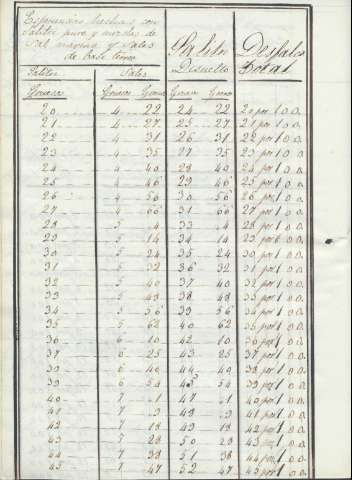 Esperiencias hechas con
Salitre puro y mezclas de
Sal marina y Sales
de base terrea
Salitre Sales
Salitre
Disuelto
Desfalco
Total
20 4 22 24 22 20 por 100
21 4 27 25 27 21 por 100
22 4 31 26 31 22 por 100
23 4 35 27 35 23 por 100
24 4 40 28 40 24 por 100
25 4 46 29 46 25 por 100
26 4 56 30 56 26 por 100
27 4 66 31 66 27 por 100
28 5 4 33 4 28 por 100
29 5 14 34 14 29 por 100
30 5 24 35 24 30 por 100
31 5 32 36 32 31 por 100
32 5 40 37 40 32 por 100
33 5 48 38 48 33 por 100
34 5 56 39 56 34 por 100
35 5 62 40 62 35 por 100
36 6 10 42 10 36 por 100
37 6 25 43 25 37 por 100
38 6 40 44 40 38 por 100
39 6 54 45 54 39 por 100
40 7 1 47 1 40 por 100
41 7 3 48 3 41 por 100
42 7 18 49 18 42 por 100
43 7 28 50 28 43 por 100
44 7 38 51 38 44 por 100
45 7 47 52 47 45 por 100